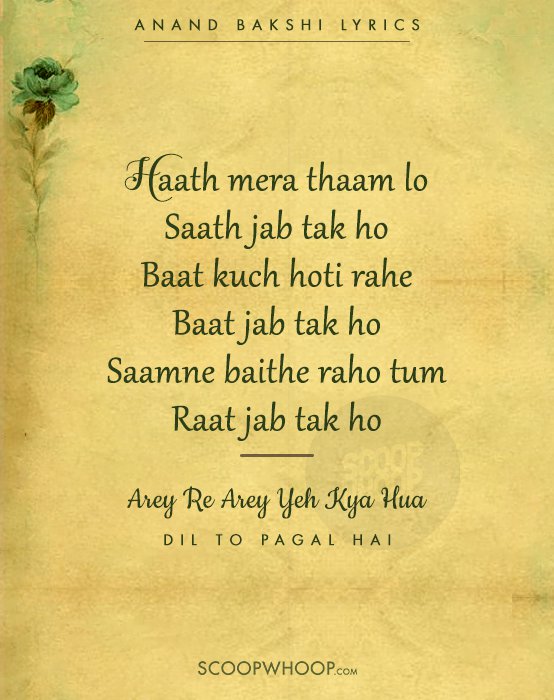 ANAND BAKSHI LYRICS
Haath mera thaam lo
Saath jab tak ho
Baat kuch hoti rahe
Baat jab tak ho
Saamne baithe raho tum
Raat jab tak ho
SCOOP
WHOOP
Arey Re Arey Yeh Kya Hua
DIL TO PAGAL HAI
SCOOPWHOOP.COM